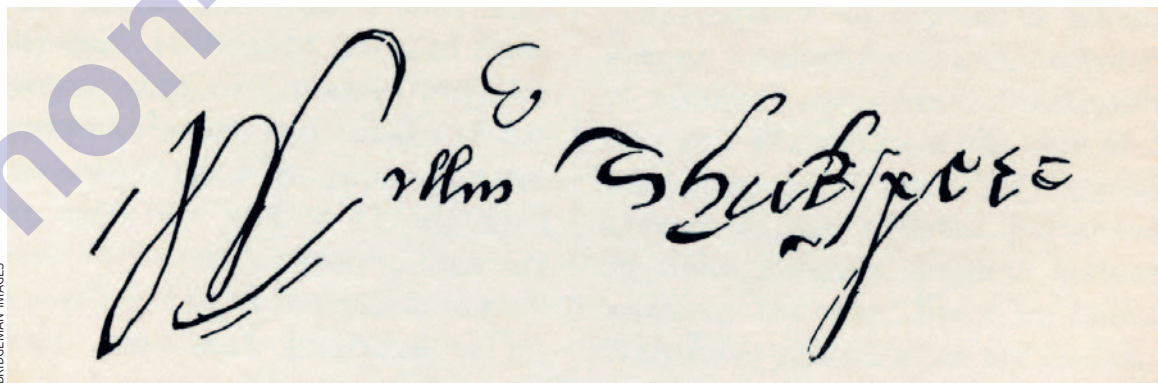 Willm Shakspere
BRIDGEMAN IMAGES
non